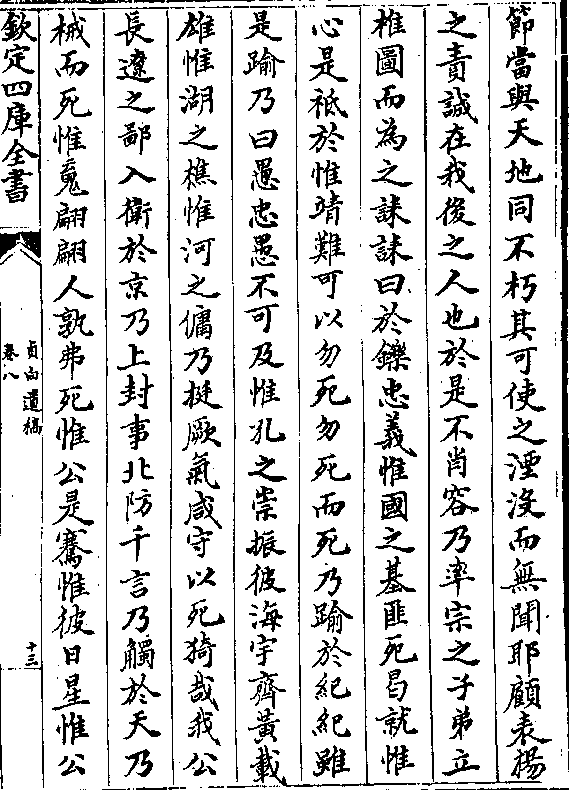 節當與天地同不朽其可使之湮沒而無聞耶顧表揚
之責誠在我後之人也於是不肖容乃率宗之子弟立
椎圖而為之誄誄曰於鑠忠義惟國之基匪死曷就惟
心是祗於惟靖難可以勿死勿死而死乃踰於紀紀雖
是踰乃曰愚忠愚不可及惟孔之崇振彼海宇齊黃載
雄惟湖之樵惟河之傭乃挺厥氣咸守以死猗哉我公
長遼之鄙入衛於京乃上封事北防千言乃觸於天乃
械而死惟䰟翩翩人孰弗死惟公是騫惟彼日星惟公
欽定四庫全書
貞白遺稿
卷八
十三